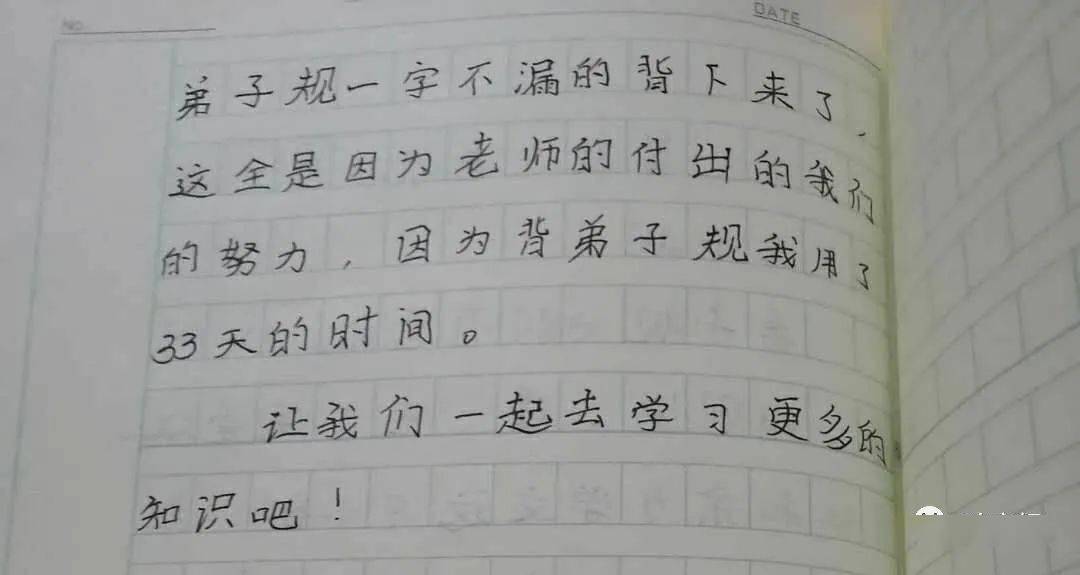 NO.
DATE
弟子规一字不漏的背下来了，
这全是因为老师的付出的我们
的努力，因为背弟子规我用了
33天的时间。
让我们一起去学习更多的
知识吧！